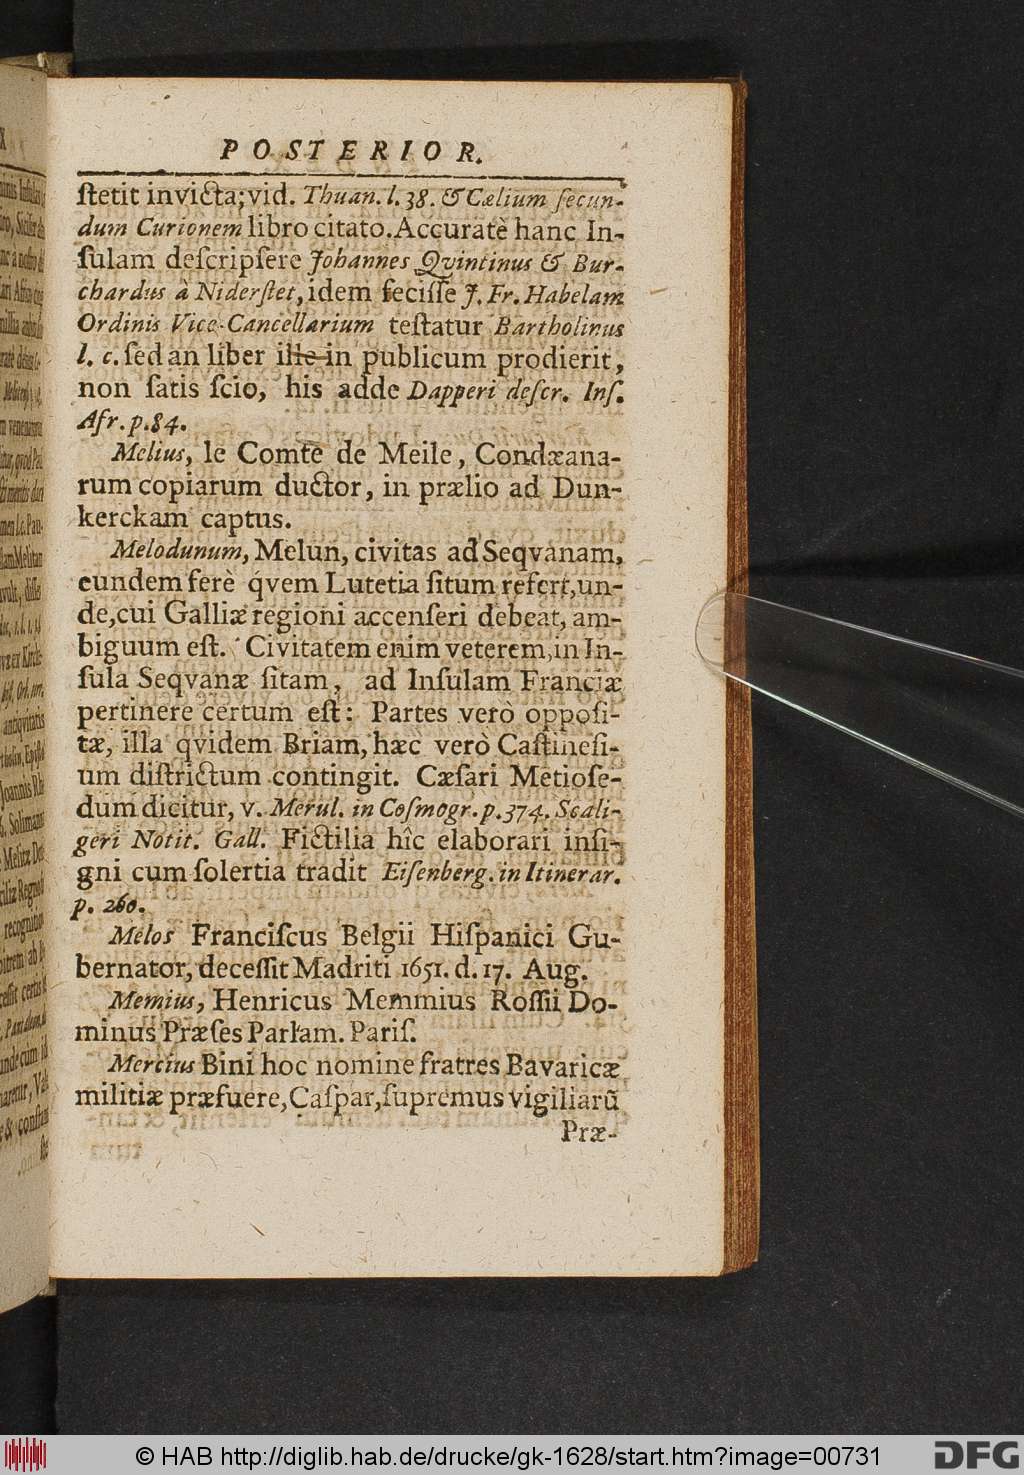 POSTERIOR.
ſtetit invicta; vid. Thuan. l. 38. & Cælium ſecun-
dum Curionem libro citato. Accuratè hanc In-
ſulam deſcripſere Johannes Qvintinus & Bur-
chardus â Niderſtet, idem feciſſe J. Fr. Habelam
Ordinis Vice-Cancellarium teſtatur Bartholinus
l. c. ſed an liber ille in publicum prodierit,
non ſatis ſcio, his adde Dapperi deſcr. Inſ.
Afr. p. 84.
Melius, le Comte de Meile, Condæana-
rum copiarum ductor, in prælio ad Dun-
kerckam captus.
Melodunum, Melun, civitas ad Seqvanam,
eundem ferè qvem Lutetia ſitum refert, un-
de, cui Galliæ regioni accenſeri debeat, am-
biguum eſt. Civitatem enim veterem, in In-
ſula Seqvanæ ſitam, ad Inſulam Franciæ
pertinere certum eſt: Partes verò oppoſi-
tæ, illa qvidem Briam, hæc verò Caſtineſi-
um diſtrictum contingit. Cæſari Metioſe-
dum dicitur, v. Merul. in Coſmogr. p. 374. Scali-
geri Notit. Gall. Fictilia hîc elaborari inſi-
gni cum ſolertia tradit Eiſenberg. in Itinerar.
p. 260.
Melos Franciſcus Belgii Hiſpanici Gu-
bernator, deceſſit Madriti 1651. d. 17. Aug.
Memius, Henricus Memmius Roſſii Do-
minus Præſes Parlam. Pariſ.
Mercius Bini hoc nomine fratres Bavaricæ
militiæ præfuere, Caſpar, ſupremus vigiliarũ
Præ-
© HAB http://diglib.hab.de/drucke/gk-1628/start.htm?image=00731
DFG